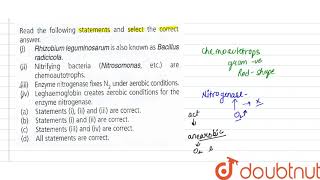 Read the following statements and select the correct
answer.
(i) Rhizobium leguminosarum is also known as Bacillus
radicicola.
(ii) Nitrifying bacteria (Nitrosomonas, etc.) are
chemoautotrophs.
(iii) Enzyme nitrogenase fixes N2 under aerobic conditions.
(iv) Leghaemoglobin creates aerobic conditions for the
enzyme nitrogenase.
(a) Statements (i), (ii) and (iii) are correct.
(b) Statements (i) and (ii) are correct.
(c) Statements (iii) and (iv) are correct.
(d) All statements are correct.
chemoautrops
gram -ve
Rod-shape
Nitrogenase-
→ x
act
O2↑
anaerobic
O2
doubtnut